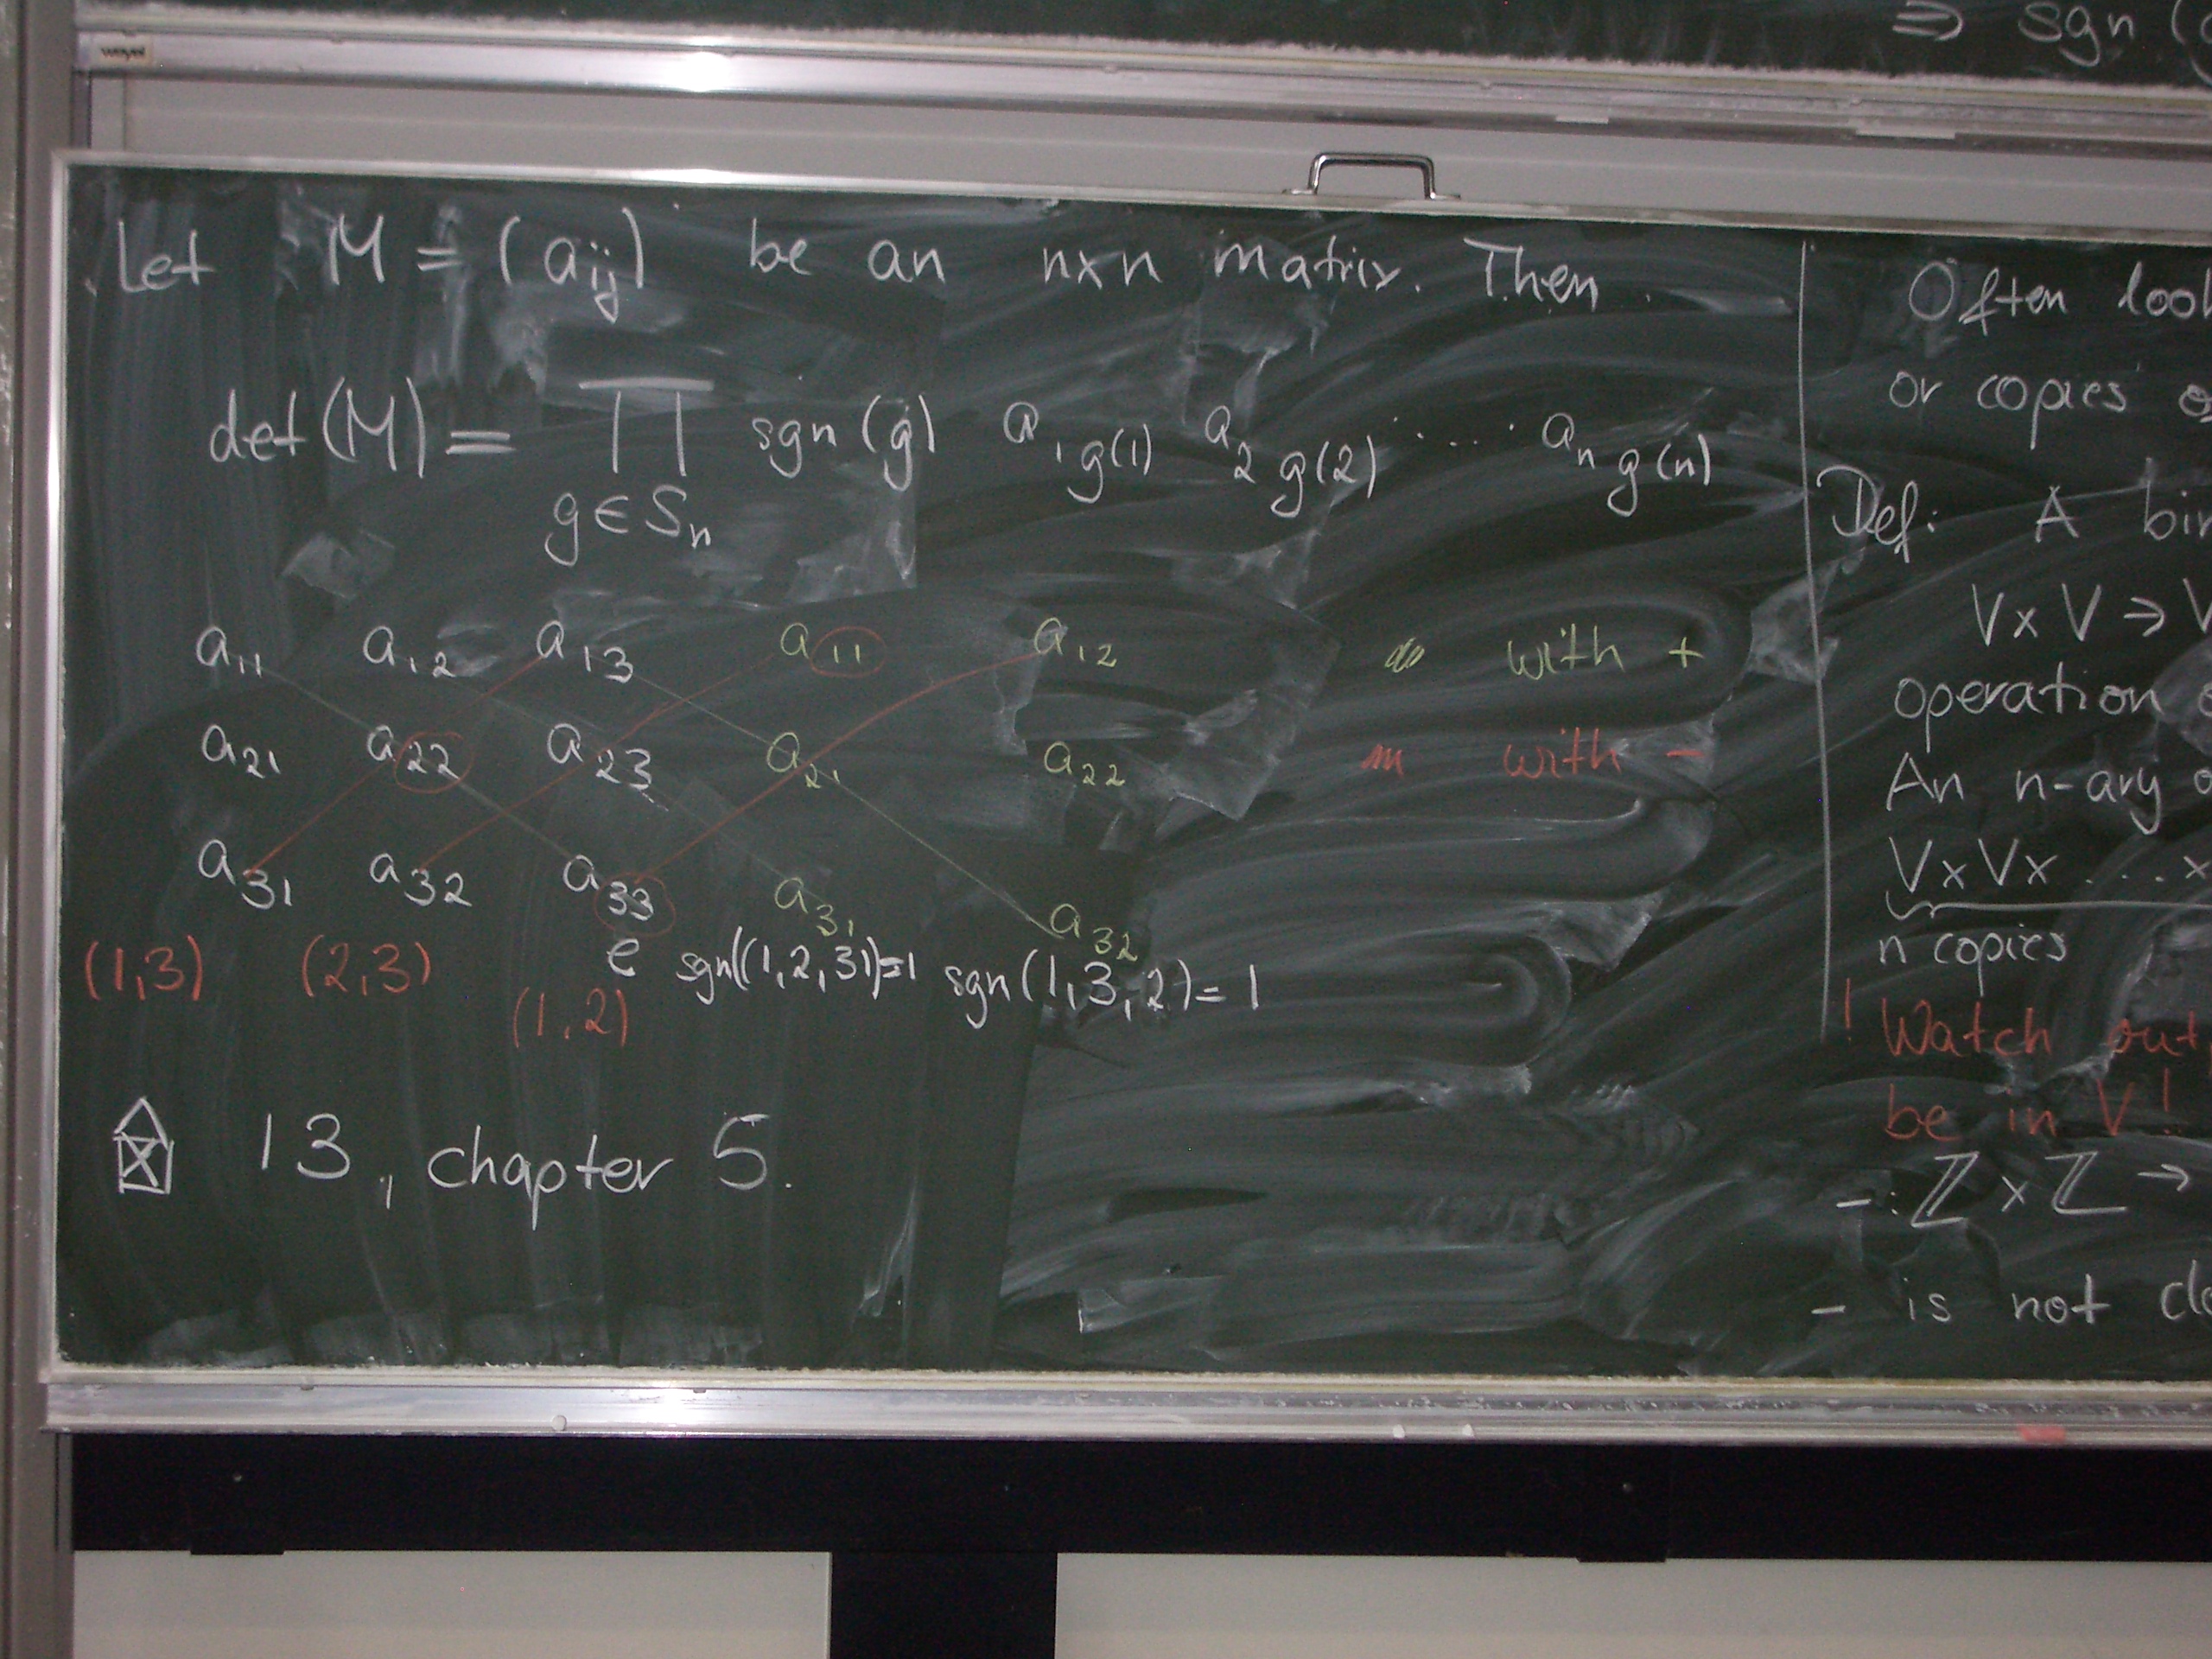 ⇒ sgn (
Let M = (aij) be an n×n matrix. Then
det(M) = ∏ sgn(g) a1g(1) a2g(2) .... ang(n)
g∈Sn
a11 a12 a13 a11 a12 with +
a21 a22 a23 a21 a22 with -
a31 a32 a33 a31 a32
(1,3) (2,3) e sgn((1,2,3))=1 sgn(1,3,2)=1
(1,2)
13, chapter 5.
Often
or copies
Def: A
V×V→
operation
An n-ary
V×V×...×
n copies
! Watch out
be in V!
-: ℤ×ℤ→
- is not